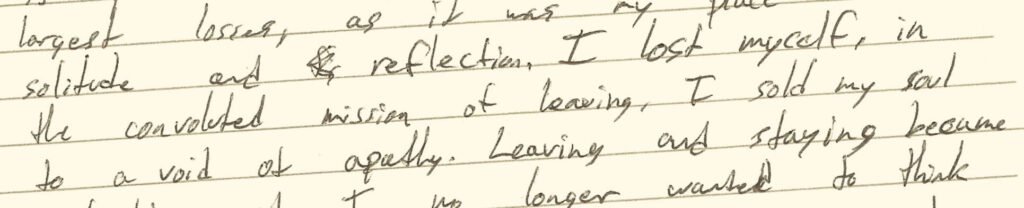 largest losses, as it was my place
solitude and reflection. I lost myself, in
the convoluted mission of leaving, I sold my soul
to a void of apathy. Leaving and staying became
I no longer wanted to think